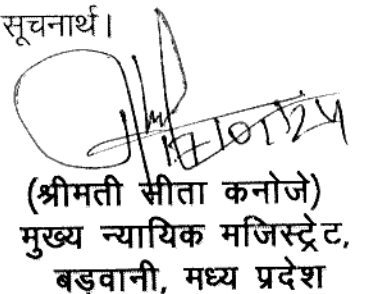 सूचनार्थ।
(श्रीमती सीता कनोजे)
मुख्य न्यायिक मजिस्ट्रेट,
बड़वानी, मध्य प्रदेश